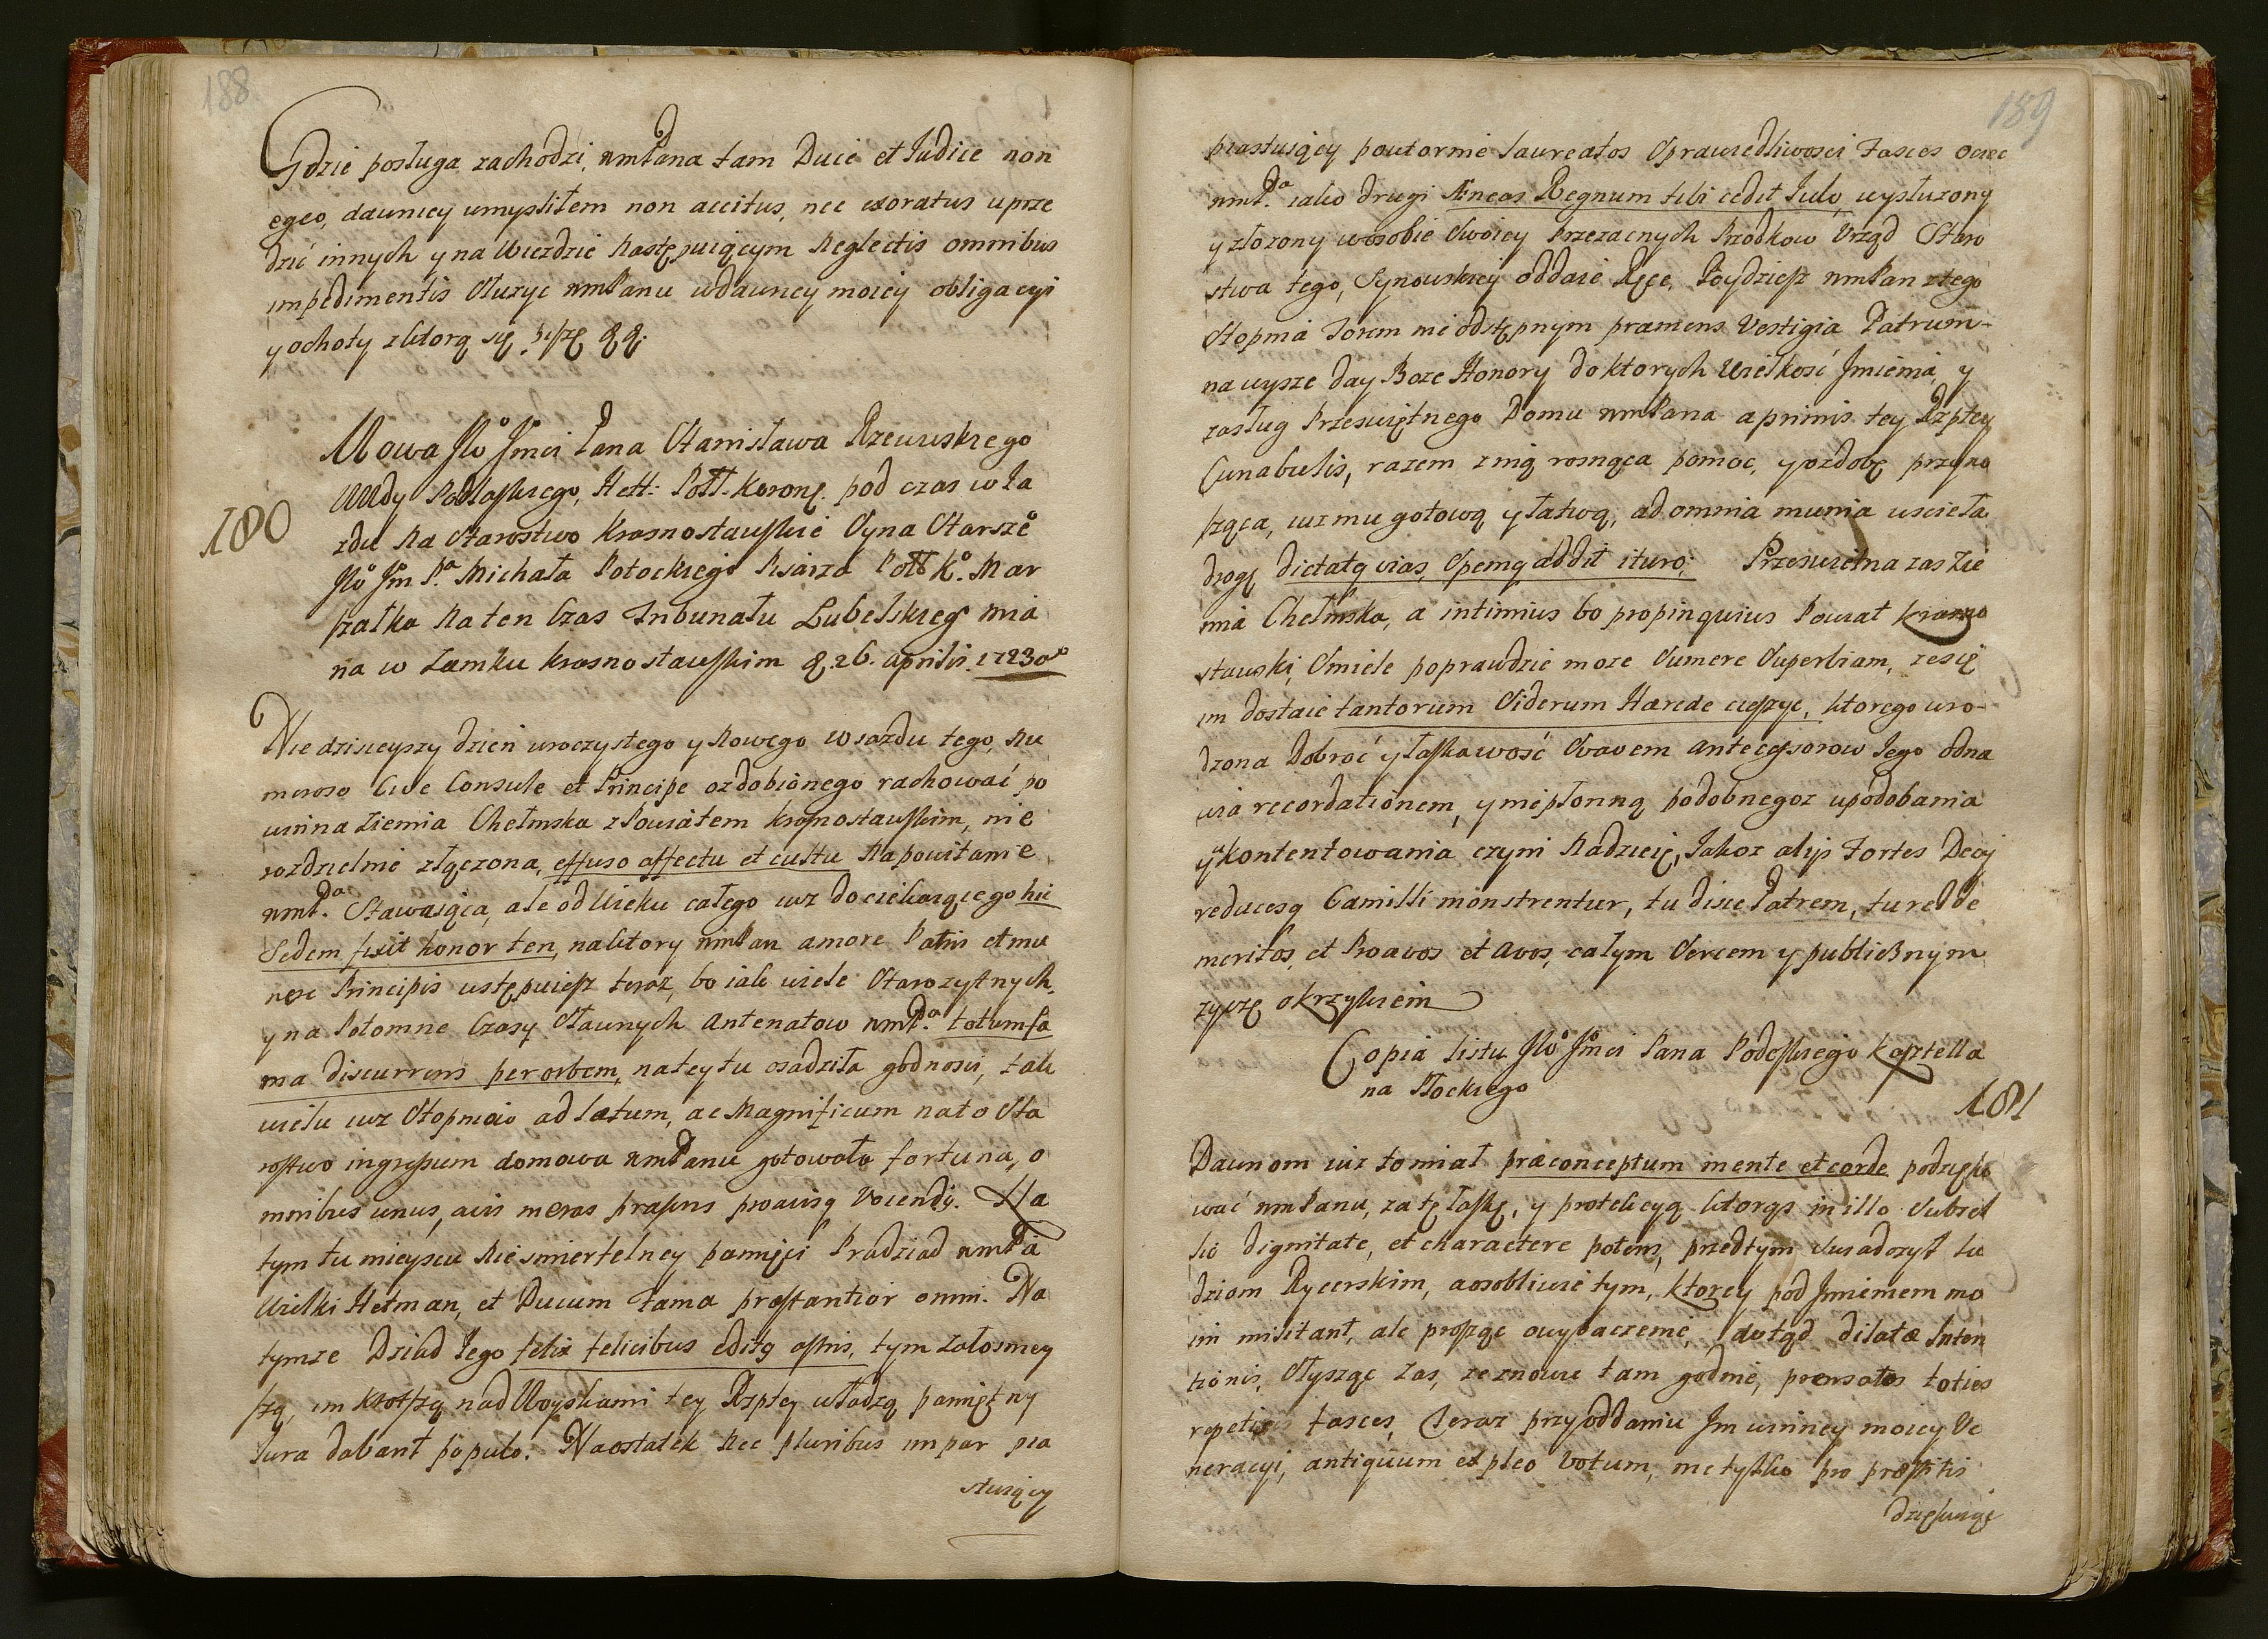 188
Gdzie posługa zachodzi, wmPana tam Duce et Iudice non
egeo, dawniey umyslilem non accitus, nec exoratus uprze
dzić innych y na Wiezdzie Następuiącym Neglectis omnibus
impedimentis Służyc wmPanu wdawney moiey obligacyi
y ochoty zktorą się piszę &&.
Mowa JWo Jmci Pana Stanisława Rzewuskiego
WWdy Podlaskiego, Hett: Poll. Koronę. pod czas wIa
zdu Na Starostwo Krasnostawskie Syna Starszeo
JWo Jm Pa Michała Potockiego Pisarza Poll Ko. Mar
szałka Na ten Czas Trybunału Lubelskiego mia
na w Zamku Krasnostawskim d. 26. aprilis.
180
Nie dzisieyszy dzień uroczystego y Nowego wiazdu tego, Nu
meroso Cive Consule et Principe ozdobionego rachować po
winna Ziemia Chełmska zPowiatem Krasnostawskim, nie
rozdzielnie złączona, effuso affectu et cultu Na powitanie
wmPa. Stawaiąca, ale od Wieku całego iuz docieka­iącego hic
Sedem fixit honor ten, na ktory wmPan amore Patris et mu
nere Principis wstępuiesz teraz, bo iak wiele Starozytnych
y na Potomne Czasy Sławnych Antenatow wmPa. totum fa
ma discurrens per orbem, na tey tu osadziła godnosci, tak
wielu iuz Stopniow ad lætum, ac Magnificum na to Sta
rostwo ingressum domowa wmPanu gotowała fortuna, o
mnibus unus, avis Na
tym tu mieyscu Nie smiertelney pamięci Pradziad wmPa
Wielki Hetman, et Ducum fama præstantior omni. Na
tymze Dziad Iego felix felicibus editq astris, tym załosniey
szą, im Krotszą nad Woyskami tey Rzptey władzą pamiętny
Iura dabant populo. Naostatek Nec pluribus impar pia
stuiący
189
piastuiący powtornie laureatos Sprawiedliwosci Fasces Ociec
wmPa. iako drugi Æneas Regnum tibi cedit Iulo, wysłuzony
y złozony wosobie Swoiey Przezacnych Przodkow Vrząd Staro
stwa tego, Synowskiey oddaie Ręce, Poydziesz wmPan ztego
Stopnia Torem nie odstępnym præmens Vestigia Patrum
na wysze day Boze Honory do ktorych Wielkosć Jmienia y
zasług Przeswiętnego Domu wmPana a primis tey Rzptey
Cunabulis, razem znią rosnąca pomoc, y ozdobę przyno
sząca, iuz mu gotową y łatwą, ad omnia munia uscieła
drogę dictatq vias, Spemq addit ituro: Przeswietna zas Zie
mia Chełmska, a intimius bo propinquius Powiat Krasno
stawski, Smiele poprawdzie moze Sumere Superbiam, ze się
im dostaie tantorum Siderum Hærede cieszyc, ktorego wro-
dzona Dobroć y łaskawość Suavem Antecessorow Iego odna
wia recordationem, y nie płonną podobnegoz upodobania
y kontentowania czyni Nadzieię, Iakoz alijs Fortes Decij
reducesq Camilli monstrentur, tu disce Patrem, tu redde
meritos, et Proavos et Avos, całym Sercem y publicznym
zyczę okrzykiem
Copia listu JWo Jmci Pana Podoskiego Kasztella
na Płockiego
181
Dawnom iuz to miał præconceptum mente et corde podzięko
wać wmPanu, za tę łaskę, y protekcyą ktorąs in illo Subsel
lio dignitate, et charactere potem, przedtym Swiadczył lu
dziom Rycerskim, a osobliwie tym, ktorzy pod Jmieniem mo
im militant, ale proszę o wybaczenie, dotąd dilatæ Inten
tionis, Słysząc zas, ze znowu tam godnie, prensatos toties
repetis fasces, Teraz przy oddaniu Jm winney moiey Ve
neracyi, antiquum expleo Votum, nie tylko pro præstitis
dziękuiąc